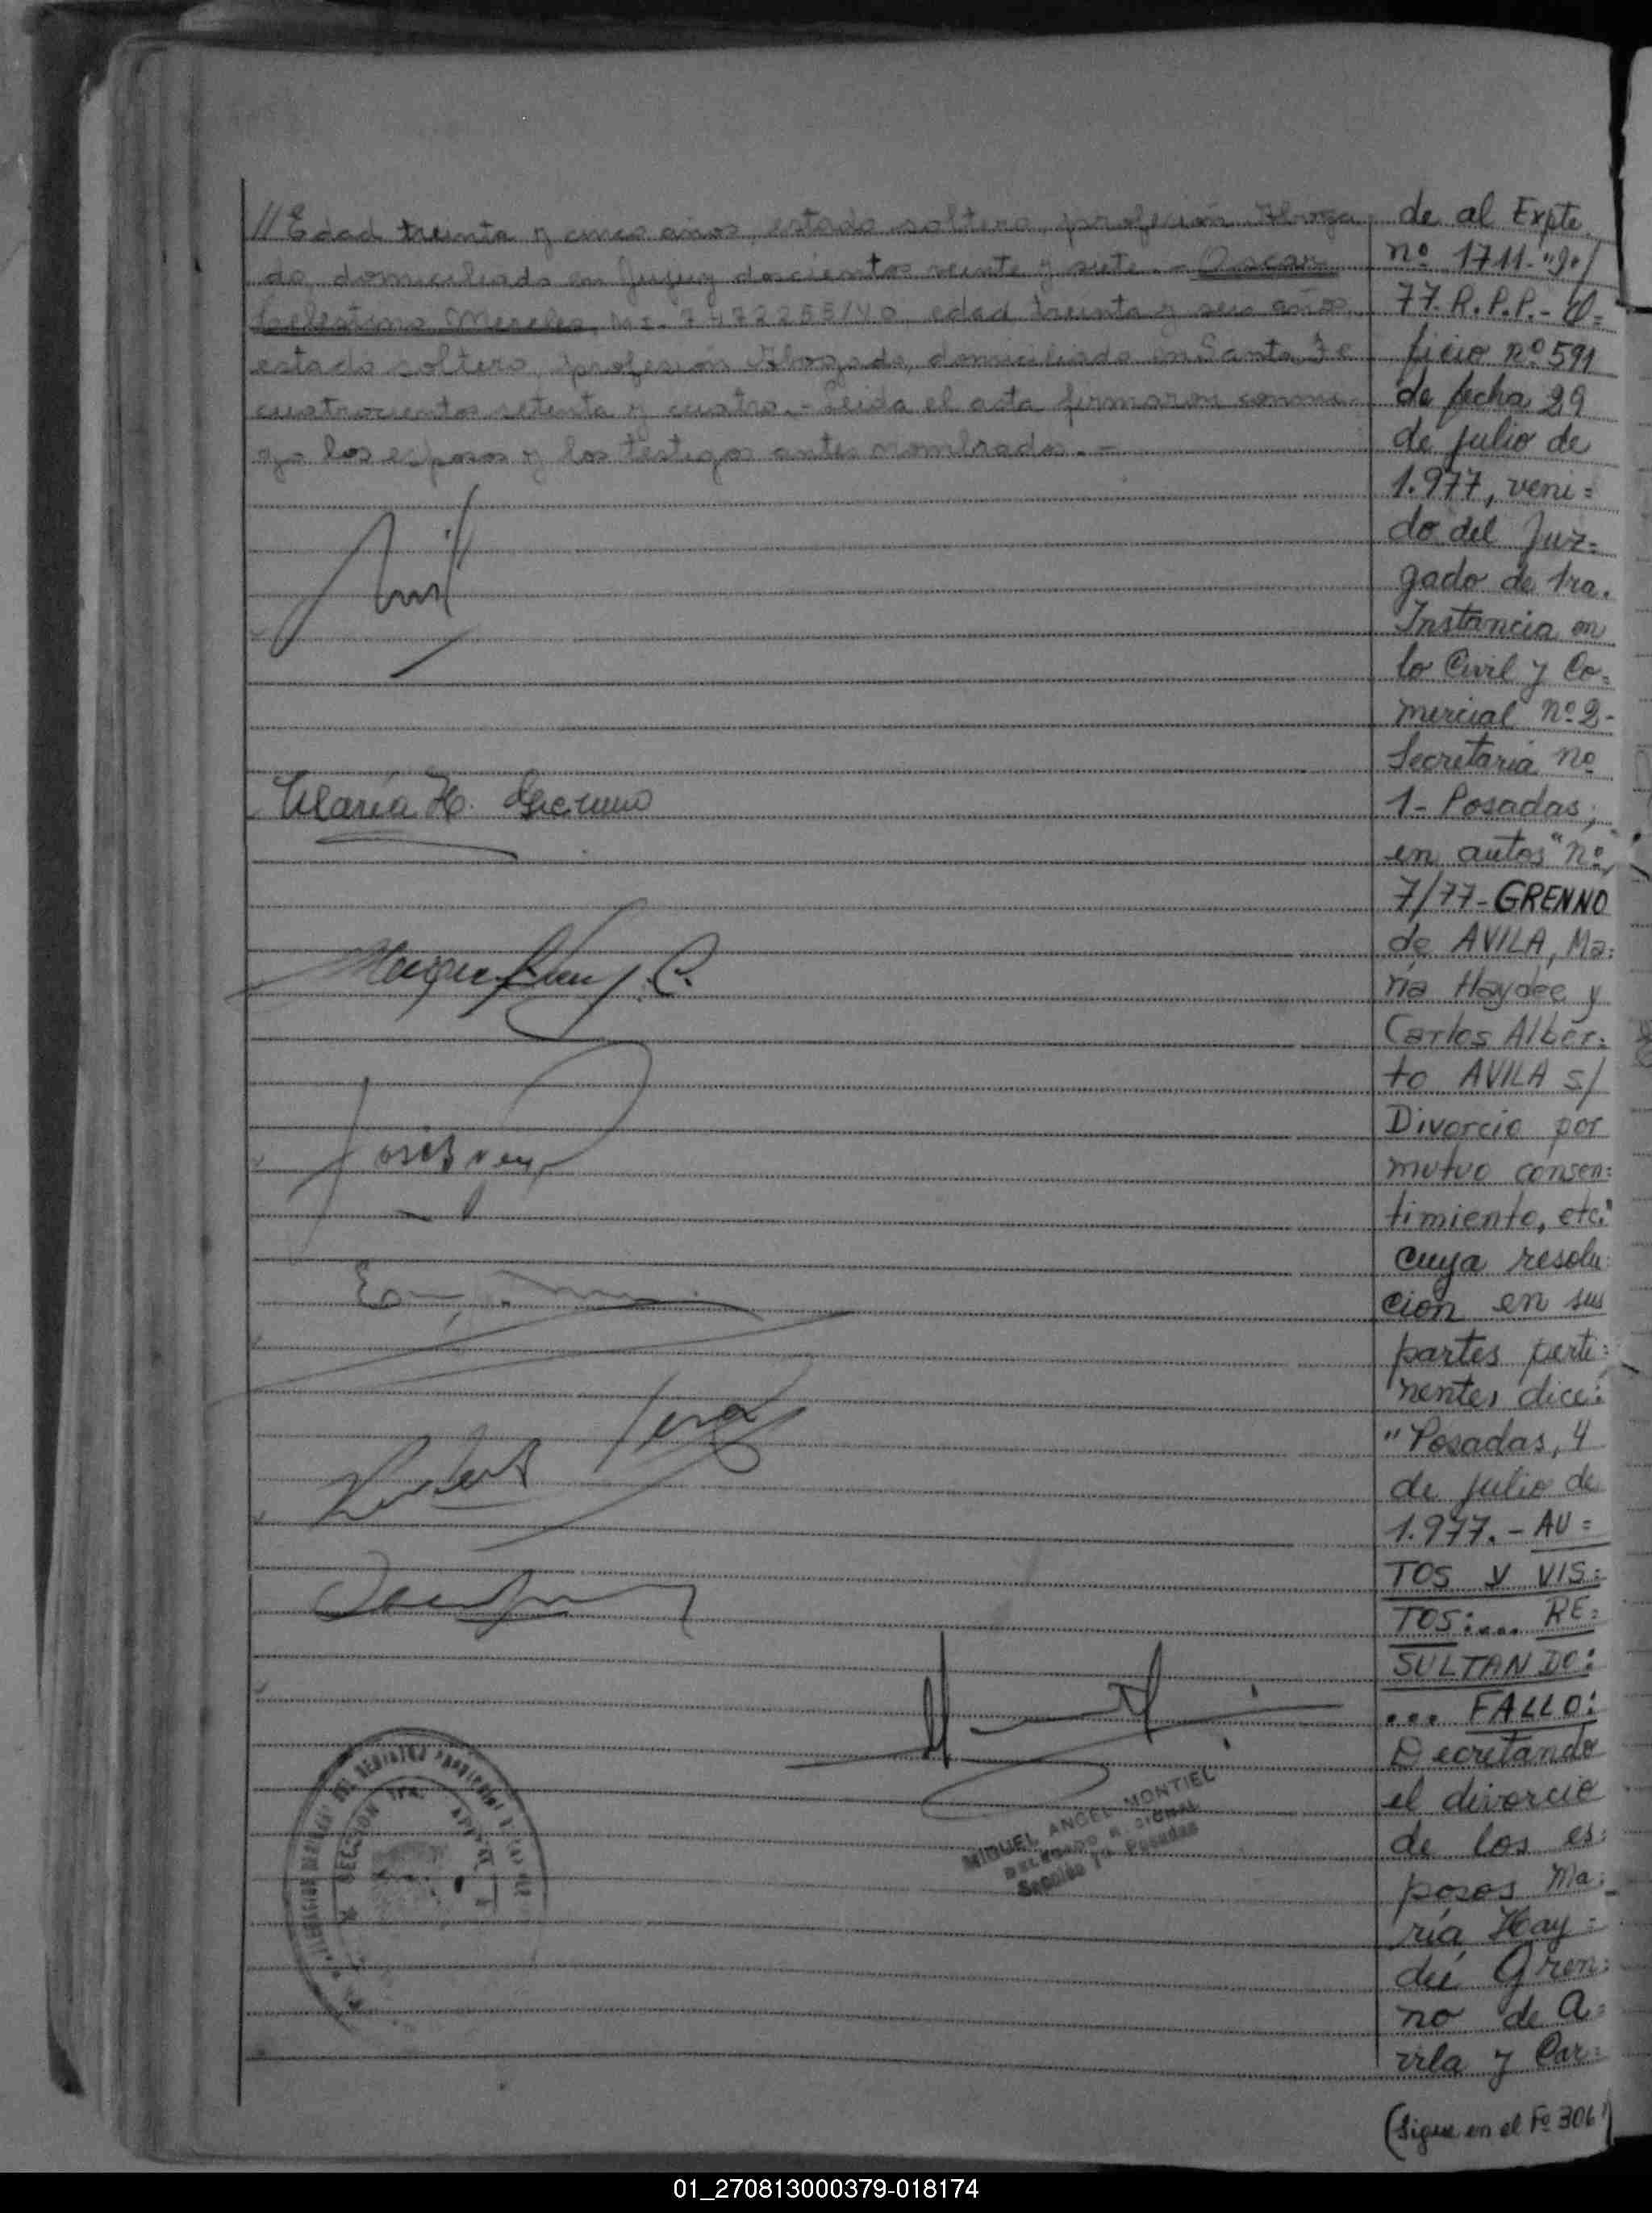 //Edad treinta y cinco años, estado soltero, profeción Aboga
do domiciliado en Jujuy doscientos veinte y siete.- Oscar
Celestino Mereles, M.I. 7.472255/40, edad treinta y seis años,
estado soltero, profesion Abogado, domiciliado en Santa Fe
cuatrocientos setenta y cuatro.- Leida el acta firmaron conmi
go los esposos y los testigos antes nombrados.=
María H. Grenno
MIGUEL ANGEL MONTIEL
DELEGADO
Sección 1ª Posadas
SECCION 1ra.
de al Expte.
nº 1711-"g"/
77. R.P.P.- O=
ficio nº 591
de fecha 29
de julio de
1.977, veni=
do del Juz=
gado de 1ra.
Instancia en
lo Civil y Co=
mercial nº 2-
Secretaria nº
1- Posadas,
en autos "nº
7/77-GRENNO
de AVILA, Ma=
ría Haydee y
Carlos Alber=
to AVILA s/
Divorcio por
mutuo consen=
timiento, etc."
cuya resolu=
ción en sus
partes perti=
nentes dice:
"Posadas, 4
de julio de
1.977.- AU=
TOS Y VIS=
TOS:.... RE=
SULTANDO:
... FALLO:
Decretando
el divorcio
de los es=
posos Ma=
ría Hay=
deé Gren=
no de A=
vila y Car=
(Sigue en el Fº 306)
01_270813000379-018174